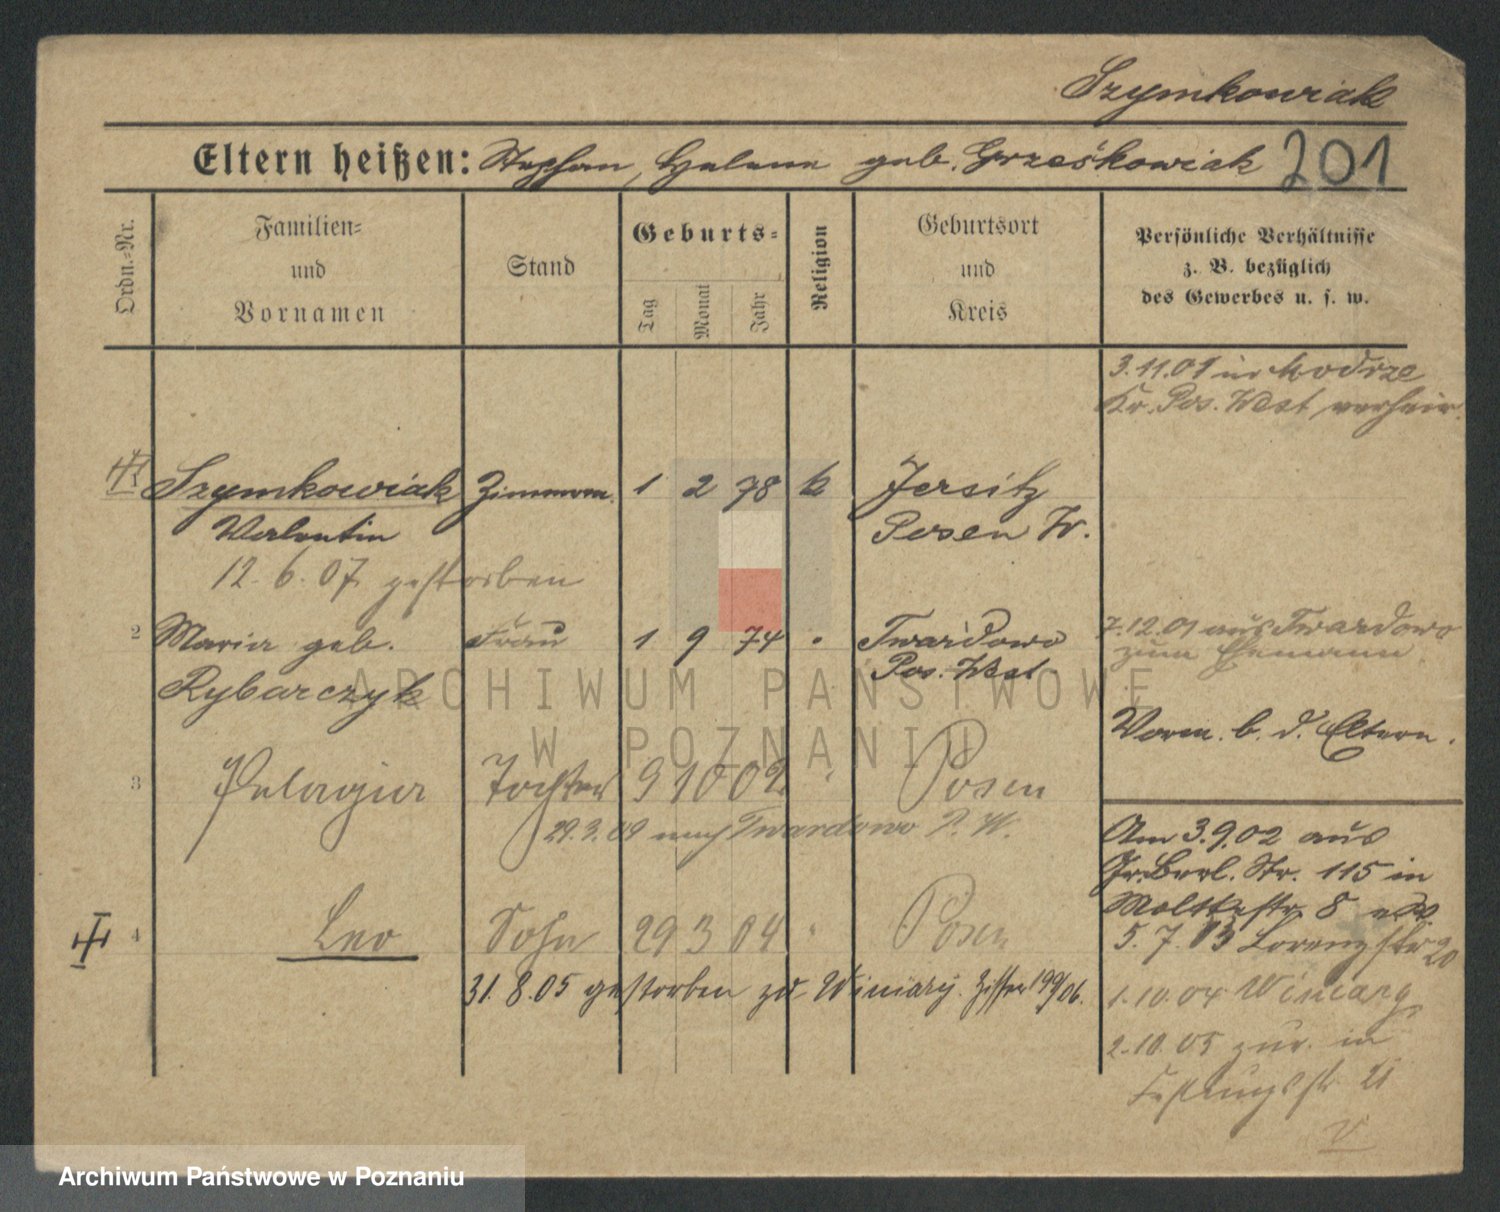 Szymkowiak
Eltern heißen: Stephan, Helene geb. Grześkowiak 201
Ordn.-Nr.
Familien-
und
Vornamen
Stand
Geburts-
Tag
Monat
Jahr
Religion
Geburtsort
und
Kreis
Persönliche Verhältnisse
z. B. bezüglich
des Gewerbes u. s. w.
3.11.01 in Modrze
Kr. Pos. West verheir.
Szymkowiak Zimmerm. 1 2 78 k Jersitz
Valentin Posen W.
12.6.07 gestorben
2 Maria geb. Frau 1 9 74 " Twardowo
Rybarczyk Pos. West
7.12.01 aus Twardowo
zum Ehemann
Vorm. b. d. Eltern.
3 Pelagia Tochter 9 10 02 " Posen
29.3.09 nach Twardowo P. W.
Am 3.9.02 aus
Gr. Berl. Str. 115 in
Moltkestr. 8
5.7.03 Lorenzstr 20
4 Leo Sohn 29 3 04 " Posen
31.8.05 gestorben zu Winiary. Ziffer 199/06.
1.10.04 Winiary
2.10.05 zur. in
Festungsstr. 21
ARCHIWUM PAŃSTWOWE
W POZNANIU
Archiwum Państwowe w Poznaniu